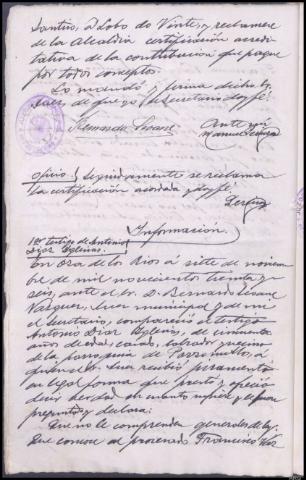 Santos, a Lobo do Vinte, y reclamese
de la Alcaldia certificación acredi-
tativa de la contribución que pague
por todos conceptos.
Lo mandó y firma dicho
de que yo Secretario doy fé.
Ante mi
Oficio. Seguidamente se reclama
la certificación acordada, doy fé.
Información.
1er testigo de Antonio
Diaz Yglesias.
En Oza de los Rios a siete de noviem-
bre de mil novecientos treinta y
seis, ante el Sr. D. Bernardo Seoane
Vazquez, Juez municipal y de mi
el Secretario, compareció el testigo
Antonio Diaz Yglesias, de cincuenta
años de edad, casado, labrador y vecino
de la parroquia de
a quien el Sr. Juez recibió juramento
en legal forma que prestó y ofreció
decir verdad en cuanto supiere y le fuere
preguntado y declara:
Que no le comprenden generales de ley.
Que conoce al procesado Francisco